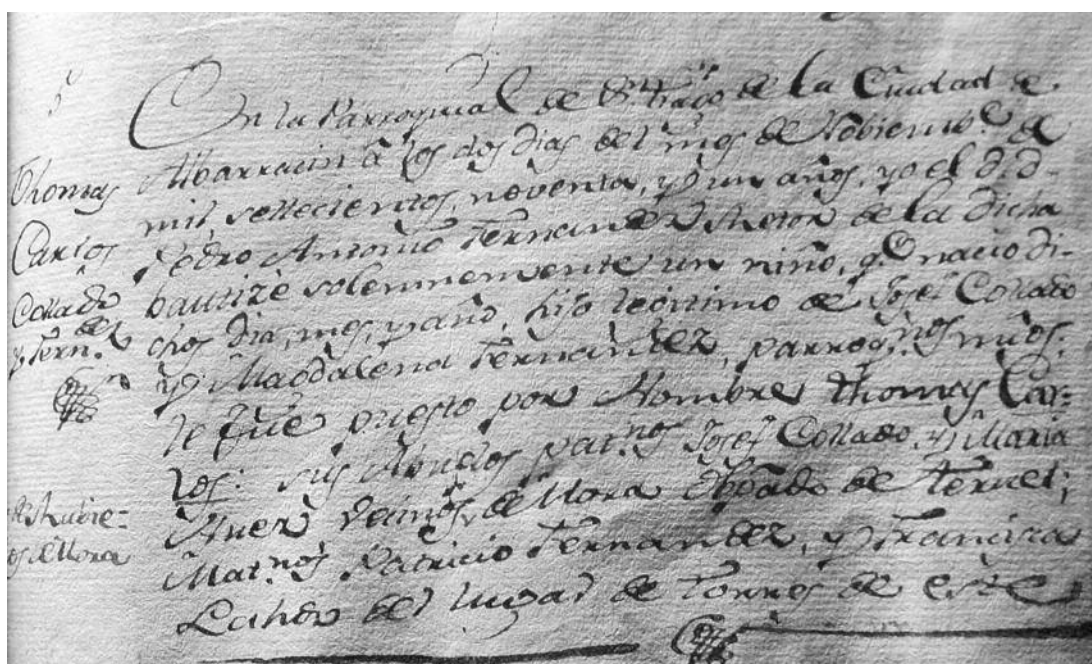 Thomas
Carlos
Collado
y Fern.ez
En la Parroquial de S.n Tiago de la Ciudad de
Albarracin â los dos dias del mes de Nobiemb.e de
mil, settecientos, noventa, y un años, yo el D.D.
Pedro Antonio Fernandez Retor de la dicha
bautizè solemnemente un niño, q.e nacio di-
chos dia, mes, y año, hijo lexitimo de Josef Collado
y Magdalena Fernandez, parroq.nos mios:
le fue puesto por Nombre Thomas Car-
los: sus Abuelos pat.nos Josef Collado, y Maria
vecinos, de Mora Obpado de Teruel;
Mat.nos Patricio Fernandez, y Francisca
del lugar de Torres de este
Rubie-
os de Mora